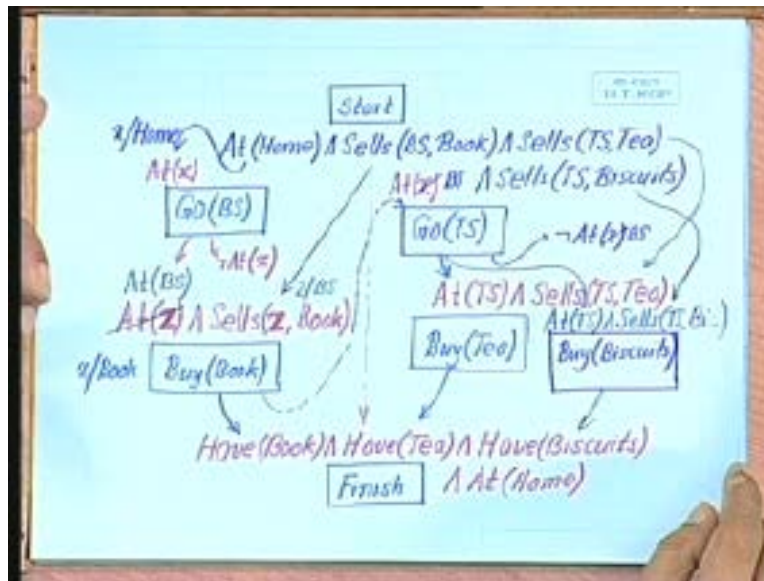 Start
x/Home
At(Home) Λ Sells(BS, Book) Λ Sells(TS, Tea)
Λ Sells(TS, Biscuits)
At(x)
At(x) BS
GO(BS)
GO(TS)
¬At(x) BS
¬At(x)
At(BS)
z/BS
At(z) Λ Sells(z, Book)
At(TS) Λ Sells(TS, Tea)
At(TS) Λ Sells(TS, Bi..)
x/Book
Buy(Book)
Buy(Tea)
Buy(Biscuits)
Have(Book) Λ Have(Tea) Λ Have(Biscuits)
Λ At(Home)
Finish